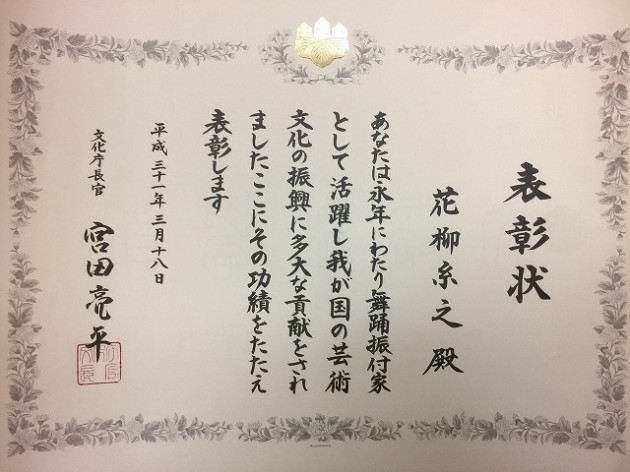 表彰状
花柳糸之 殿
あなたは永年にわたり舞踊振付家
として活躍し我が国の芸術
文化の振興に多大な貢献をされ
ましたここにその功績をたたえ
表彰します
平成三十一年三月十八日
文化庁長官 宮田亮平